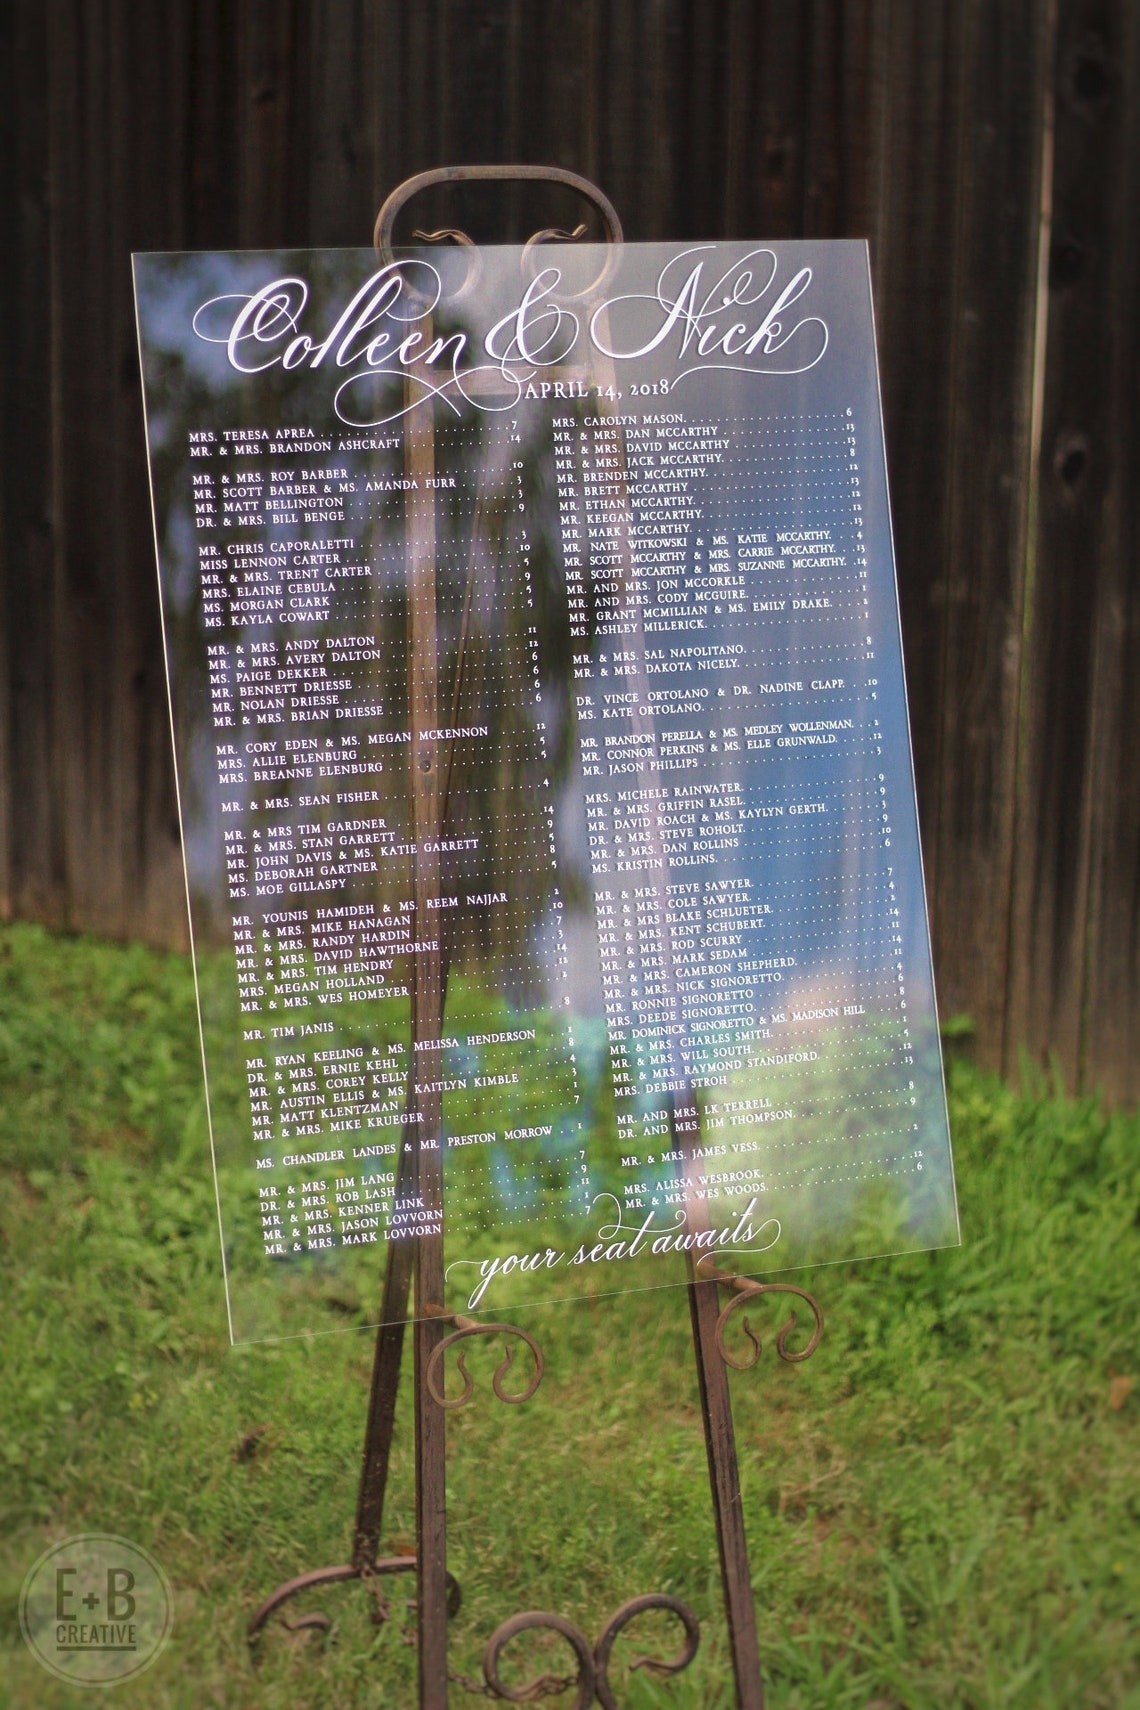 Colleen & Nick
APRIL 14, 2018
MRS. TERESA APREA . . . 7
MR. & MRS. BRANDON ASHCRAFT . . . 14
MR. & MRS. ROY BARBER . . . 10
MR. SCOTT BARBER & MS. AMANDA FURR . . . 3
MR. MATT BELLINGTON . . . 3
DR. & MRS. BILL BENGE . . . 9
MR. CHRIS CAPORALETTI . . . 3
MISS LENNON CARTER . . . 10
MR. & MRS. TRENT CARTER . . . 5
MRS. ELAINE CEBULA . . . 9
MS. MORGAN CLARK . . . 5
MS. KAYLA COWART . . . 5
MR. & MRS. ANDY DALTON . . . 11
MR. & MRS. AVERY DALTON . . . 12
MS. PAIGE DEKKER . . . 6
MR. BENNETT DRIESSE . . . 6
MR. NOLAN DRIESSE . . . 6
MR. & MRS. BRIAN DRIESSE . . . 6
MR. CORY EDEN & MS. MEGAN MCKENNON . . . 12
MRS. ALLIE ELENBURG . . . 5
MRS. BREANNE ELENBURG . . . 5
MR. & MRS. SEAN FISHER . . . 4
MR. & MRS TIM GARDNER . . . 14
MR. & MRS. STAN GARRETT . . . 9
MR. JOHN DAVIS & MS. KATIE GARRETT . . . 5
MS. DEBORAH GARTNER . . . 8
MS. MOE GILLASPY . . . 5
MR. YOUNIS HAMIDEH & MS. REEM NAJJAR . . . 2
MR. & MRS. MIKE HANAGAN . . . 10
MR. & MRS. RANDY HARDIN . . . 7
MR. & MRS. DAVID HAWTHORNE . . . 3
MR. & MRS. TIM HENDRY . . . 14
MRS. MEGAN HOLLAND . . . 12
MR. & MRS. WES HOMEYER . . . 2
MR. TIM JANIS . . . 8
MR. RYAN KEELING & MS. MELISSA HENDERSON . . . 1
DR. & MRS. ERNIE KEHL . . . 8
MR. & MRS. COREY KELLY . . . 4
MR. AUSTIN ELLIS & MS. KAITLYN KIMBLE . . . 3
MR. MATT KLENTZMAN . . . 1
MR. & MRS. MIKE KRUEGER . . . 7
MS. CHANDLER LANDES & MR. PRESTON MORROW . . 1
MR. & MRS. JIM LANG . . . 7
DR. & MRS. ROB LASH . . . 9
MR. & MRS. KENNER LINK . . . 11
MR. & MRS. JASON LOVVORN . . . 1
MR. & MRS. MARK LOVVORN . . . 7
MRS. CAROLYN MASON. . . . 6
MR. & MRS. DAN MCCARTHY . . . 13
MR. & MRS. DAVID MCCARTHY . . . 13
MR. & MRS. JACK MCCARTHY. . . . 8
MR. BRENDEN MCCARTHY. . . . 12
MR. BRETT MCCARTHY . . . 13
MR. ETHAN MCCARTHY. . . . 12
MR. KEEGAN MCCARTHY. . . . 12
MR. MARK MCCARTHY. . . . 13
MR. NATE WITKOWSKI & MS. KATIE MCCARTHY. . . 4
MR. SCOTT MCCARTHY & MRS. CARRIE MCCARTHY. . .13
MR. SCOTT MCCARTHY & MRS. SUZANNE MCCARTHY. .14
MR. AND MRS. JON MCCORKLE . . . 11
MR. AND MRS. CODY MCGUIRE. . . . 1
MR. GRANT MCMILLIAN & MS. EMILY DRAKE. . . . 2
MS. ASHLEY MILLERICK. . . . 1
MR. & MRS. SAL NAPOLITANO. . . . 8
MR. & MRS. DAKOTA NICELY. . . . 11
DR. VINCE ORTOLANO & DR. NADINE CLAPP. . .10
MS. KATE ORTOLANO. . . . 5
MR. BRANDON PERELLA & MS. MEDLEY WOLLENMAN. . . 2
MR. CONNOR PERKINS & MS. ELLE GRUNWALD. . . . 12
MR. JASON PHILLIPS . . . 3
MRS. MICHELE RAINWATER. . . . 9
MR. & MRS. GRIFFIN RASEL. . . . 9
MR. DAVID ROACH & MS. KAYLYN GERTH. . . . 3
DR. & MRS. STEVE ROHOLT. . . . 9
MR. & MRS. DAN ROLLINS . . . 10
MS. KRISTIN ROLLINS. . . . 6
MR. & MRS. STEVE SAWYER. . . . 7
MR. & MRS. COLE SAWYER. . . . 4
MR. & MRS BLAKE SCHLUETER. . . . 2
MR. & MRS. KENT SCHUBERT. . . . 14
MR. & MRS. ROD SCURRY . . . 11
MR. & MRS. MARK SEDAM . . . 14
MR. & MRS. CAMERON SHEPHERD. . . . 11
MR. & MRS. NICK SIGNORETTO . . . 4
MR. RONNIE SIGNORETTO . . . 6
MRS. DEEDE SIGNORETTO. . . . 8
MR. DOMINICK SIGNORETTO & MS. MADISON HILL . . . 6
MR. & MRS. CHARLES SMITH. . . . 1
MR. & MRS. WILL SOUTH. . . . 5
MR. & MRS. RAYMOND STANDIFORD. . . . 12
MRS. DEBBIE STROH . . . 13
MR. AND MRS. LK TERRELL . . . 8
DR. AND MRS. JIM THOMPSON. . . . 9
MR. & MRS. JAMES VESS. . . . 2
MRS. ALISSA WESBROOK. . . . 12
MR. & MRS. WES WOODS. . . . 6
your seat awaits
E+B
CREATIVE